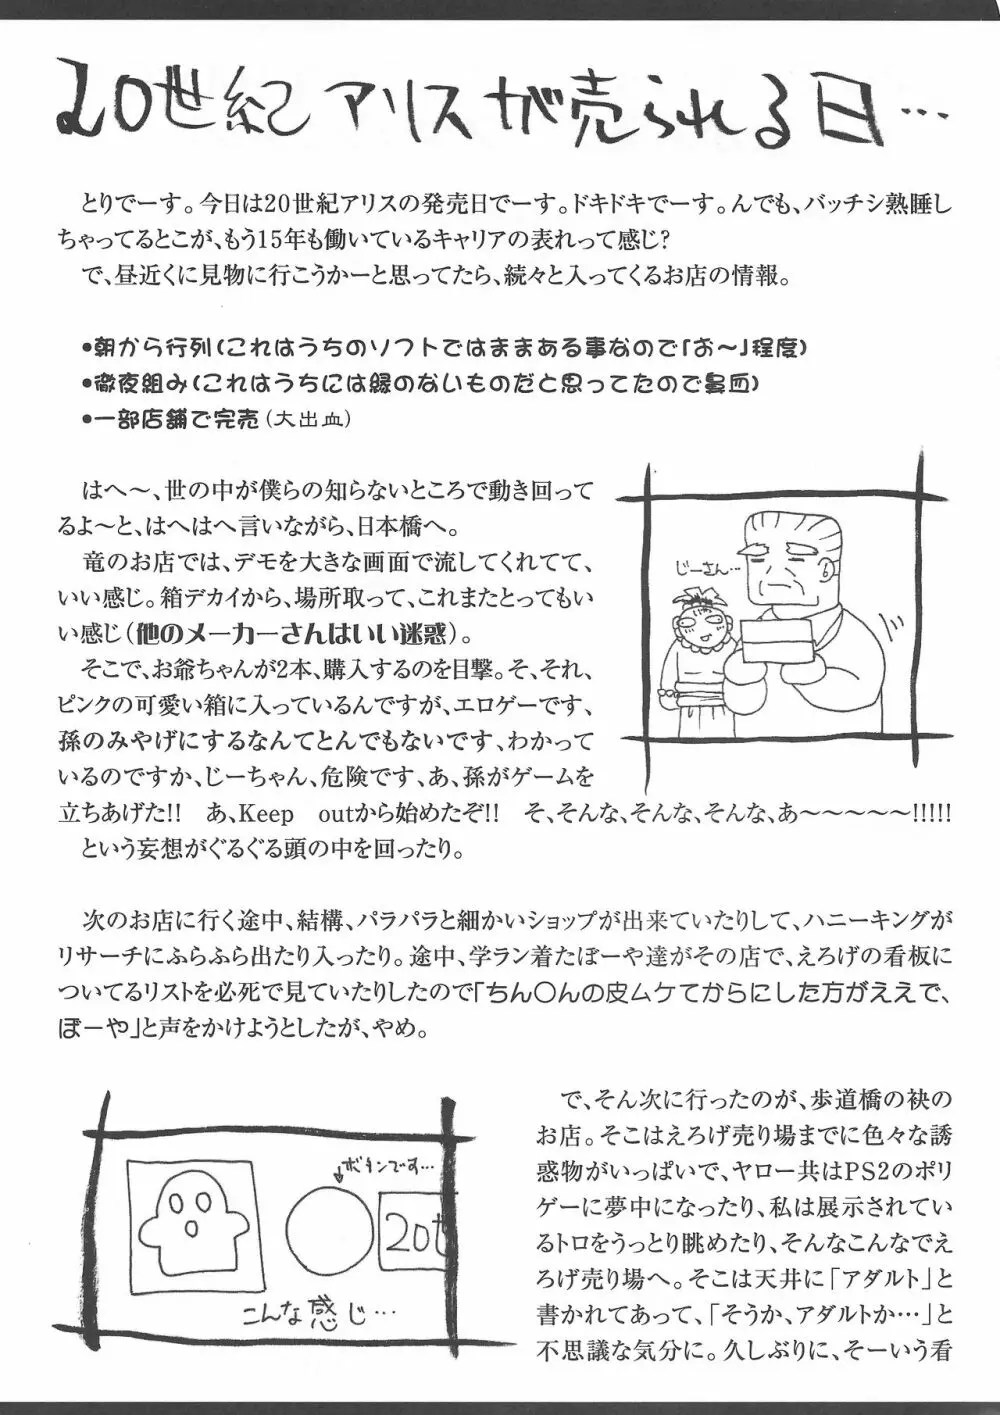 20世紀アリスが売られる日…
とりでーす。今日は20世紀アリスの発売日でーす。ドキドキでーす。んでも、バッチシ熟睡し
ちゃってるとこが、もう15年も働いているキャリアの表れって感じ?
で、昼近くに見物に行こうかーと思ってたら、続々と入ってくるお店の情報。
●朝から行列(これはうちのソフトではままある事なので「お〜」程度)
●徹夜組み(これはうちには縁のないものだと思ってたので鼻血)
●一部店舗で完売(大出血)
はへ〜、世の中が僕らの知らないところで動き回って
るよ〜と、はへはへ言いながら、日本橋へ。
竜のお店では、デモを大きな画面で流してくれてて、
いい感じ。箱デカイから、場所取って、これまたとってもい
い感じ(他のメーカーさんはいい迷惑)。
そこで、お爺ちゃんが2本、購入するのを目撃。そ、それ、
ピンクの可愛い箱に入っているんですが、エロゲーです、
孫のみやげにするなんてとんでもないです、わかって
いるのですか、じーちゃん、危険です、あ、孫がゲームを
立ちあげた!! あ、Keep outから始めたぞ!! そ、そんな、そんな、そんな、あ〜〜〜〜〜!!!!!
という妄想がぐるぐる頭の中を回ったり。
じーさん…
次のお店に行く途中、結構、パラパラと細かいショップが出来ていたりして、ハニーキングが
リサーチにふらふら出たり入ったり。途中、学ラン着たぼーや達がその店で、えろげの看板に
についてるリストを必死で見ていたりしたので「ちん○んの皮ムケてからにした方がええで、
ぼーや」と声をかけようとしたが、やめ。
ボタンです…
20t
こんな感じ…
で、そん次に行ったのが、歩道橋の袂の
お店。そこはえろげ売り場までに色々な誘
惑物がいっぱいで、ヤロー共はPS2のポリ
ゲーに夢中になったり、私は展示されてい
るトロをうっとり眺めたり、そんなこんなでえ
ろげ売り場へ。そこは天井に「アダルト」と
書かれてあって、「そうか、アダルトか…」と
不思議な気分に。久しぶりに、そーいう看